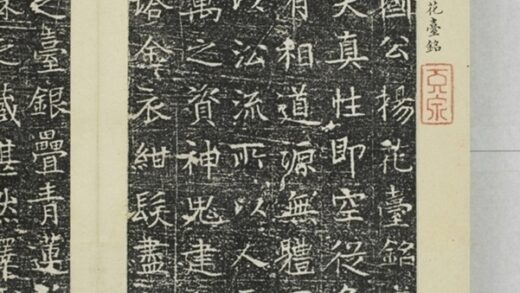 花臺銘
國公楊花臺銘
夫真性即空從
有相道源無體
以㳂流所以人
萬之資神鬼建
塔金衣紺髮盡
之臺銀疊青蓮